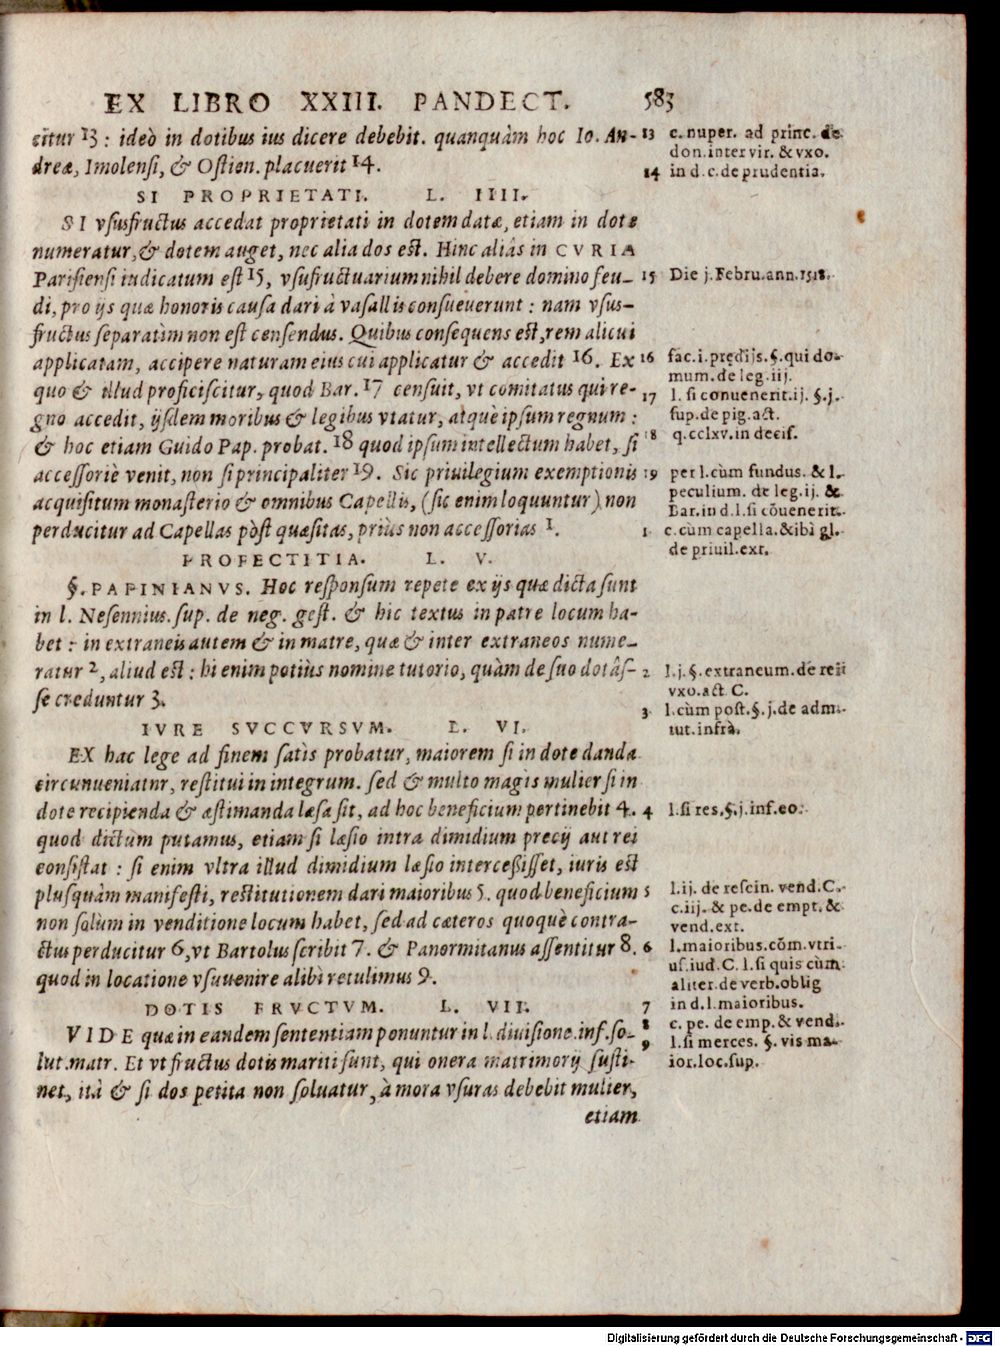 EX LIBRO XXIII. PANDECT. 583
citur 13 : ideò in dotibus ius dicere debebit. quanquàm hoc Io. An-
dreæ, Imolensi, & Ostien. placuerit 14.
SI PROPRIETATI. L. IIII.
SI vsusfructus accedat proprietati in dotem datæ, etiam in dote
numeratur, & dotem auget, nec alia dos est. Hinc aliâs in CVRIA
Parisiensi iudicatum est 15, vsufructuarium nihil debere domino feu-
di, pro ijs quæ honoris causa dari à vasallis consueuerunt : nam vsus-
fructus separatìm non est censendus. Quibus consequens est, rem alicui
applicatam, accipere naturam eius cui applicatur & accedit 16. Ex
quo & illud proficiscitur, quod Bar. 17 censuit, vt comitatus qui re-
gno accedit, ijsdem moribus & legibus vtatur, atquè ipsum regnum :
& hoc etiam Guido Pap. probat. 18 quod ipsum intellectum habet, si
accessoriè venit, non si principaliter 19. Sic priuilegium exemptionis
acquisitum monasterio & omnibus Capellis, (sic enim loquuntur) non
perducitur ad Capellas pòst quæsitas, priùs non accessorias 1.
PROFECTITIA. L. V.
§. PAPINIANVS. Hoc responsum repete ex ijs quæ dicta sunt
in l. Nesennius. sup. de neg. gest. & hic textus in patre locum ha-
bet : in extraneis autem & in matre, quæ & inter extraneos nume-
ratur 2, aliud est : hi enim potiùs nomine tutorio, quàm de suo dotâs-
se creduntur 3.
IVRE SVCCVRSVM. L. VI.
EX hac lege ad finem satìs probatur, maiorem si in dote danda
circunueniatnr, restitui in integrum. sed & multo magis mulier si in
dote recipienda & æstimanda læsa sit, ad hoc beneficium pertinebit 4.
quod dictum putamus, etiam si læsio intra dimidium precij aut rei
consistat : si enim vltra illud dimidium læsio intercessisset, iuris est
plusquàm manifesti, restitutionem dari maioribus 5. quod beneficium
non solùm in venditione locum habet, sed ad cæteros quoquè contra-
ctus perducitur 6, vt Bartolus scribit 7. & Panormitanus assentitur 8.
quod in locatione vsuuenire alibi retulimus 9.
DOTIS FRVCTVM. L. VII.
VIDE quæ in eandem sententiam ponuntur in l. diuisione. inf. so-
lut. matr. Et vt fructus dotis mariti sunt, qui onera matrimonij susti-
net, ità & si dos petita non soluatur, à mora vsuras debebit mulier,
etiam
13 c. nuper. ad princ. de
don. inter vir. & vxo.
14 in d. c. de prudentia.
15 Die j. Febru. ann. 1518.
16 fac. i. prędijs. §. qui do-
mum. de leg. iij.
17 l. si conuenerit. ij. §. j.
sup. de pig. act.
18 q. cclxv. in decis.
19 per l. cùm fundus. & l.
peculium. de leg. ij. &
Bar. in d. l. si cõuenerit.
1 c. cùm capella. & ibi gl.
de priuil. ext.
2 l. j. §. extraneum. de rei
vxo. act. C.
3 l. cùm post. §. j. de adm.
tut. infrà.
4 l. si res. §. j. inf. eo.
5 l. ij. de rescin. vend. C.
c. iij. & pe. de empt. &
vend. ext.
6 l. maioribus. cõm. vtri-
us. iud. C. l. si quis cùm
aliter. de verb. oblig
7 in d. l. maioribus.
8 c. pe. de emp. & vend.
9 l. si merces. §. vis ma-
ior. loc. sup.
Digitalisierung gefördert durch die Deutsche Forschungsgemeinschaft - DFG